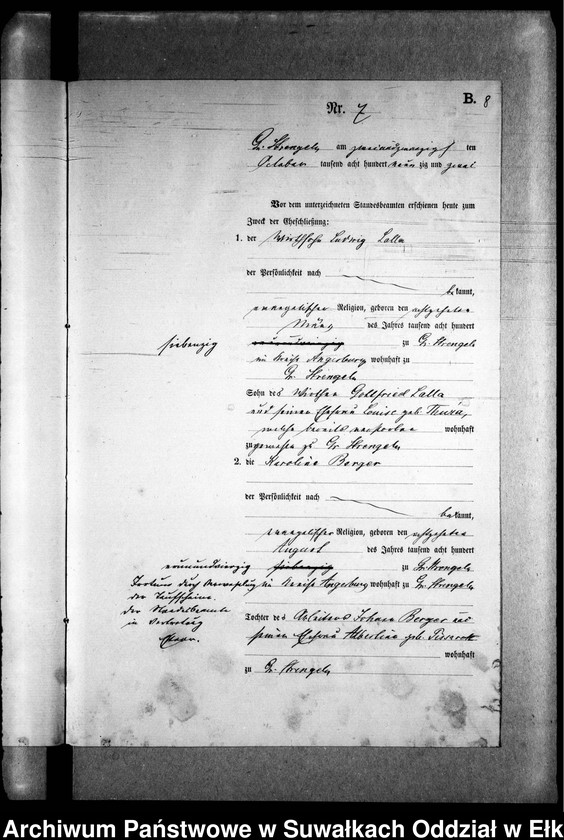 B. 8
Nr. 7
Gr. Strengeln am zweiundzwanzigsten
October tausend acht hundert neunzig und zwei
Vor dem unterzeichneten Standesbeamten erschienen heute zum
Zweck der Eheschließung:
1. der Wirthssohn Ludwig Lalla
der Persönlichkeit nach
bekannt,
evangelischer Religion, geboren den achtzehnten
März des Jahres tausend acht hundert
siebenzig
neunundvierzig zu Gr. Strengeln
im Kreise Angerburg wohnhaft zu
Gr. Strengeln
Sohn des Wirthen Gottfried Lalla
und seiner Ehefrau Louise geb.
welche bereits verstorben wohnhaft
zu gewesen zu Gr. Strengeln
2. die Karoline Berger
der Persönlichkeit nach
bekannt,
evangelischer Religion, geboren den achtzehnten
August des Jahres tausend acht hundert
neunundvierzig siebenzig zu Gr. Strengeln
im Kreise Angerburg wohnhaft zu Gr. Strengeln
Irrthum durch Verwechslung
der Taufscheine.
Der Standesbeamte
in Vertretung
Tochter des Arbeiters Johann Berger und
seiner Ehefrau Albertine geb.
wohnhaft
zu Gr. Strengeln
Archiwum Państwowe w Suwałkach Oddział w Ełk